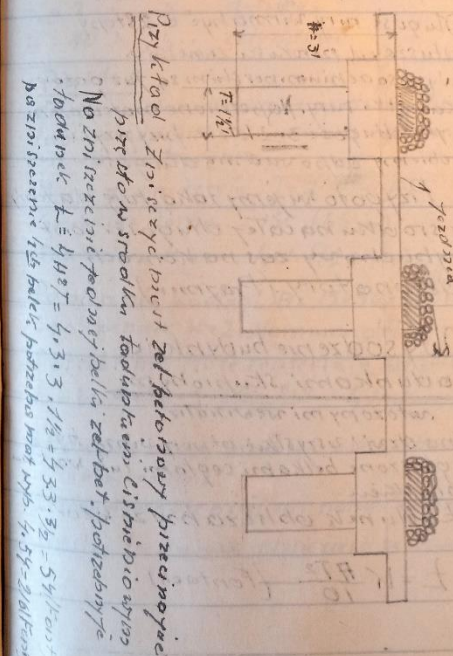 jezdnia
H=3'
T=1½'
Przykład Zniszczyć most żel-betonowy przecinając
przęsło w środku ładunkiem ciśnieniowym
Na zniszczenie jednej belki żel bet. potrzebuję
ładunek L = 4H²T = 4.3.3.1½ = 4.3.3.3/2 = 54 funt
na zniszczenie 4ch belek potrzeba mat wyb. 4.54=216 funt